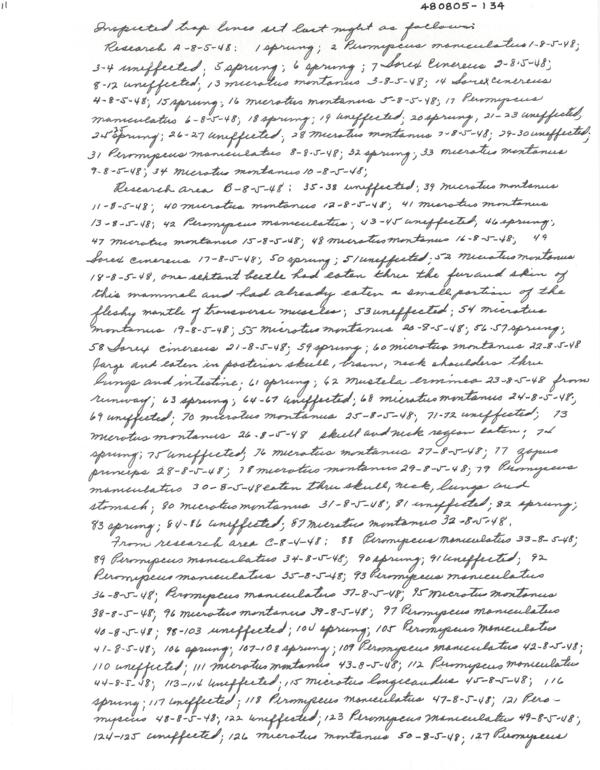 480805-134
Inspected trap lines set last night as follows:
Research A-8-5-48: 1 sprung; 2 Peromyscus maniculatus 1-8-5-48;
3-4 uneffected; 5 sprung; 6 sprung; 7 Sorex Cinereus 2-8-5-48;
8-12 uneffected; 13 microtus montanus 3-8-5-48; 14 Sorex Cinereus
4-8-5-48; 15 sprung; 16 microtus montanus 5-8-5-48; 17 Peromyscus
maniculatus 6-8-5-48; 18 sprung; 19 uneffected; 20 sprung, 21-23 uneffected,
25 sprung; 26-27 uneffected, 28 microtus montanus 7-8-5-48; 29-30 uneffected;
31 Peromyscus maniculatus 8-8-5-48; 32 sprung; 33 microtus montanus
9-8-5-48; 34 microtus montanus 10-8-5-48;
Research area B-8-5-48: 35-38 uneffected; 39 microtus montanus
11-8-5-48; 40 microtus montanus 12-8-5-48; 41 microtus montanus
13-8-5-48; 42 Peromyscus maniculatus; 43-45 uneffected, 46 sprung;
47 microtus montanus 15-8-5-48; 48 microtus montanus 16-8-5-48; 49
Sorex cinereus 17-8-5-48; 50 sprung; 51 uneffected; 52 microtus montanus
18-8-5-48, one sextant beetle had eaten thru the fur and skin of
this mammal and had already eaten a small portion of the
fleshy mantle of transverse muscles; 53 uneffected; 54 microtus
montanus 19-8-5-48; 55 microtus montanus 20-8-5-48; 56-57 sprung;
58 Sorex cinereus 21-8-5-48; 59 sprung; 60 microtus montanus 22-8-5-48
large and eaten in posterior skull, brain, neck shoulders thru
lungs and intestine; 61 sprung; 62 Mustela erminea 23-8-5-48 from
runway; 63 sprung; 64-67 uneffected; 68 microtus montanus 24-8-5-48;
69 uneffected; 70 microtus montanus 25-8-5-48; 71-72 uneffected; 73
microtus montanus 26-8-5-48 skull and neck region eaten; 74
sprung; 75 uneffected; 76 microtus montanus 27-8-5-48; 77 zapus
princeps 28-8-5-48; 78 microtus montanus 29-8-5-48; 79 Peromyscus
maniculatus 30-8-5-48 eaten thru skull, neck, lungs and
stomach; 80 microtus montanus 31-8-5-48; 81 uneffected; 82 sprung;
83 sprung; 84-86 uneffected; 87 microtus montanus 32-8-5-48.
From research area C-8-4-48: 88 Peromyscus maniculatus 33-8-5-48;
89 Peromyscus maniculatus 34-8-5-48; 90 sprung; 91 uneffected; 92
Peromyscus maniculatus 35-8-5-48; 93 Peromyscus maniculatus
36-8-5-48; Peromyscus maniculatus 37-8-5-48; 95 microtus montanus
38-8-5-48; 96 microtus montanus 39-8-5-48; 97 Peromyscus maniculatus
40-8-5-48; 98-103 uneffected; 104 sprung; 105 Peromyscus maniculatus
41-8-5-48; 106 sprung; 107-108 sprung; 109 Peromyscus maniculatus 42-8-5-48;
110 uneffected; 111 microtus montanus 43-8-5-48; 112 Peromyscus maniculatus
44-8-5-48; 113-114 uneffected; 115 microtus longicaudus 45-8-5-48; 116
sprung; 117 uneffected; 118 Peromyscus maniculatus 47-8-5-48; 121 Pero-
myscus 48-8-5-48; 122 uneffected; 123 Peromyscus maniculatus 49-8-5-48;
124-125 uneffected; 126 microtus montanus 50-8-5-48; 127 Peromyscus